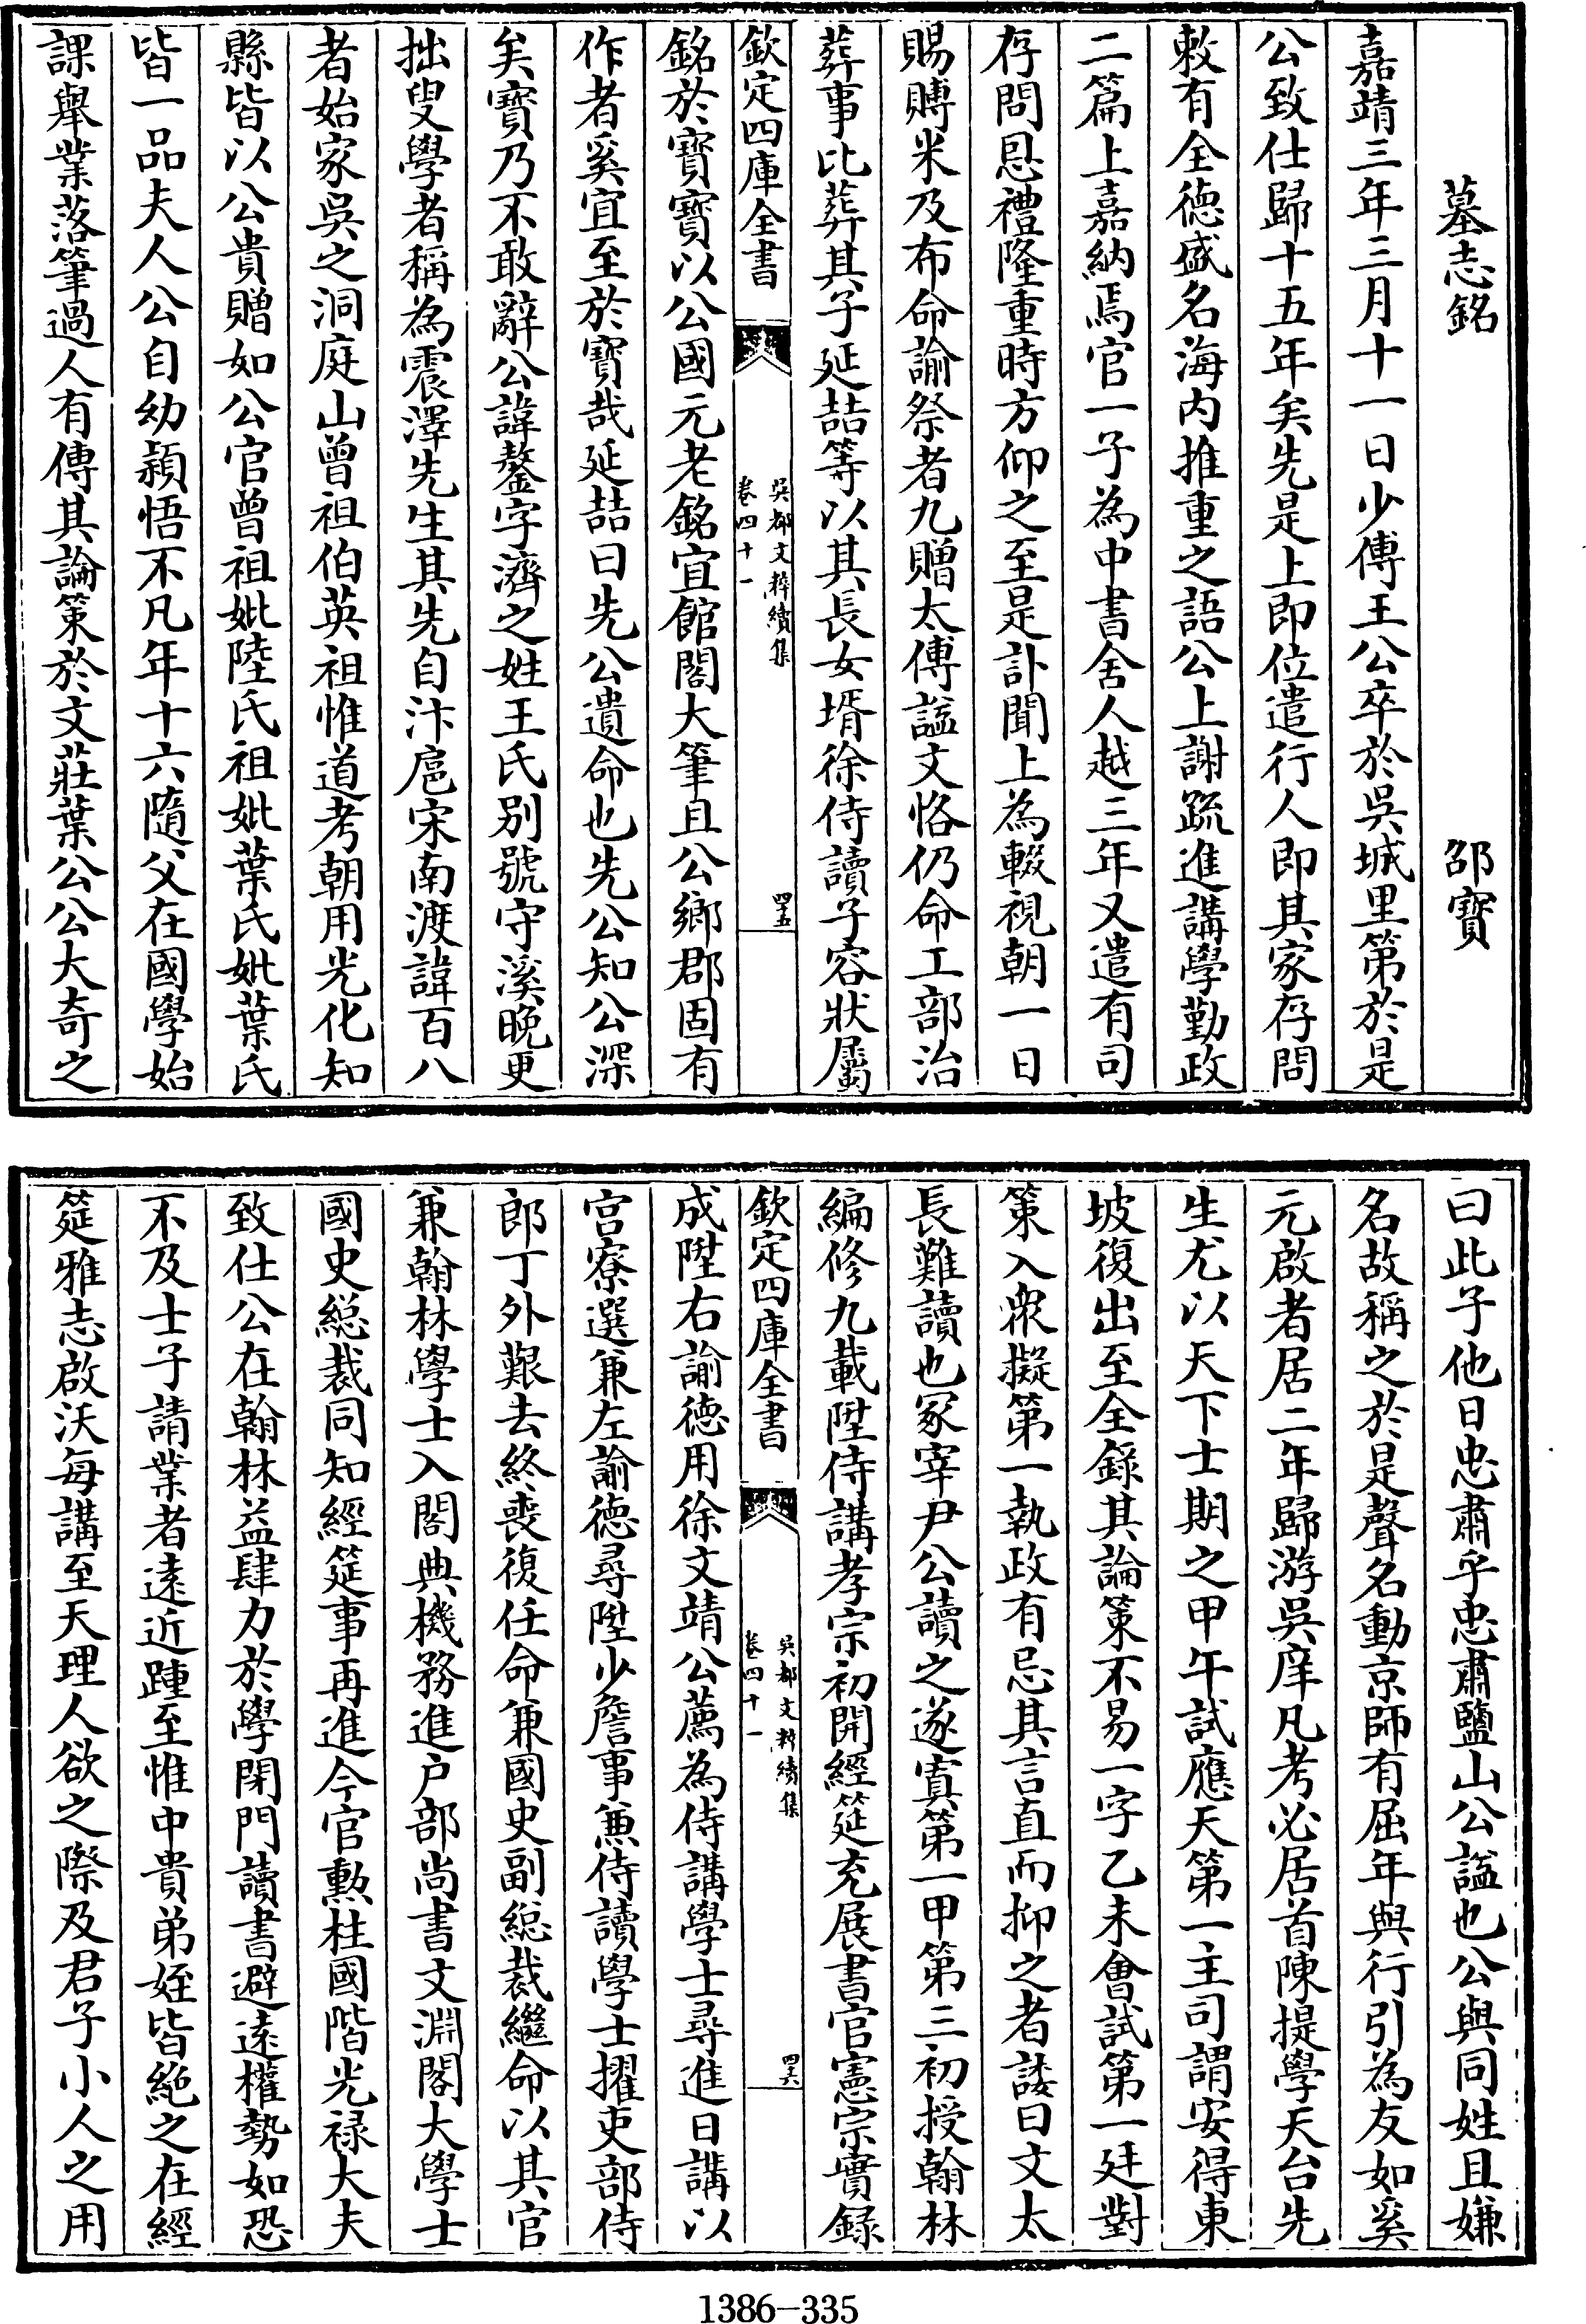 墓志銘　邵寶
嘉靖三年三月十一日少傅王公卒於吳城里第於是
公致仕歸十五年矣先是上即位遣行人即其家存問
敕有全德盛名海内推重之語公上謝疏進講學勤政
二篇上嘉納焉官一子為中書舍人越三年又遣有司
存問恩禮隆重時方仰之至是訃聞上為輟視朝一日
賜賻米及布命諭祭者九贈太傅謚文恪仍命工部治
葬事比葬其子延喆等以其長女壻徐侍讀子容狀屬
欽定四庫全書
吳都文粹續集
卷四十一
四十五
銘於寶寶以公國元老銘宜館閣大筆且公鄉郡固有
作者奚宜至於寶哉延喆曰先公遺命也先公知公深
矣寶乃不敢辭公諱鏊字濟之姓王氏别號守溪晚更
拙叟學者稱為震澤先生其先自汴扈宋南渡諱百八
者始家吳之洞庭山曾祖伯英祖惟道考朝用光化知
縣皆以公貴贈如公官曾祖妣陸氏祖妣葉氏妣葉氏
皆一品夫人公自幼穎悟不凡年十六隨父在國學始
課舉業落筆過人有傳其論策於文莊葉公公大奇之
曰此子他日忠肅乎忠肅鹽山公謚也公與同姓且嫌
名故稱之於是聲名動京師有屈年與行引為友如奚
元啟者居二年歸游吳庠凡考必居首陳提學天台先
生尤以天下士期之甲午試應天第一主司謂安得東
坡復出至全錄其論策不易一字乙未會試第一廷對
策入衆擬第一執政有忌其言直而抑之者諉曰文太
長難讀也冢宰尹公讀之遂寘第一甲第三初授翰林
編修九載陞侍講孝宗初開經筵充展書官憲宗實録
欽定四庫全書
吳都文粹續集
卷四十一
四十六
成陞右諭德用徐文靖公薦為侍講學士尋進日講以
宫寮選兼左諭德尋陞少詹事兼侍讀學士擢吏部侍
郎丁外艱去終喪復任命兼國史副總裁繼命以其官
兼翰林學士入閣典機務進户部尚書文淵閣大學士
國史總裁同知經筵事再進今官勲柱國階光禄大夫
致仕公在翰林益肆力於學閉門讀書避遠權勢如恐
不及士子請業者遠近踵至惟中貴弟姪皆絶之在經
筵雅志啟沃每講至天理人欲之際及君子小人之用
1386—335